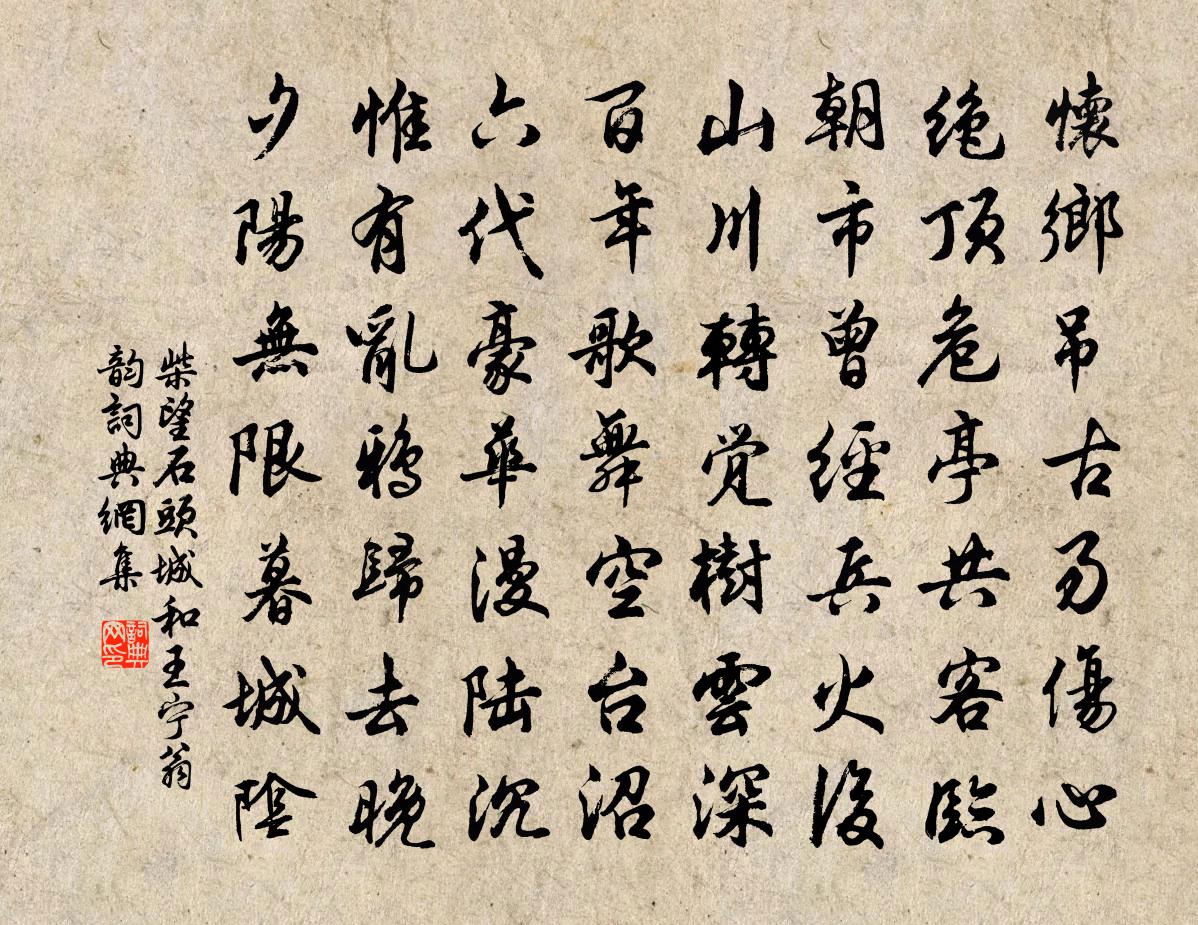 懷鄉吊古易傷心
絶頂危亭共客臨
朝市曾經兵火後
山川轉覺樹雲深
百年歌舞空台沼
六代豪華漫陆沉
惟有亂鴉歸去晚
夕陽無限暮城陰
柴望石頭城和王宁翁
韵詞典網集
詞典网印